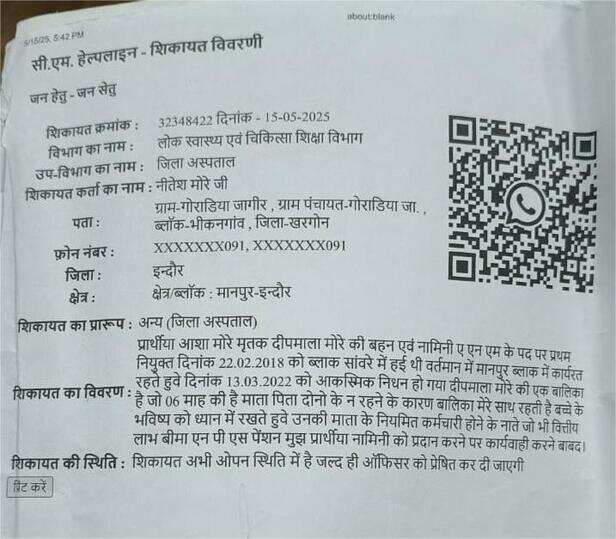 about:blank
5/15/25, 5:42 PM
सी.एम. हेल्पलाइन - शिकायत विवरणी
जन हेतु - जन सेतु
शिकायत क्रमांक : 32348422 दिनांक - 15-05-2025
विभाग का नाम : लोक स्वास्थ्य एवं चिकित्सा शिक्षा विभाग
उप-विभाग का नाम : जिला अस्पताल
शिकायत कर्ता का नाम : नीतेश मोरे जी
ग्राम-गोराडिया जागीर , ग्राम पंचायत-गोराडिया जा. ,
पता : ब्लॉक-भीकनगांव , जिला-खरगोन
फ़ोन नंबर : XXXXXXX091, XXXXXXX091
जिला : इन्दौर
क्षेत्र : क्षेत्र/ब्लॉक : मानपुर-इन्दौर
शिकायत का प्रारूप : अन्य (जिला अस्पताल)
प्रार्थीया आशा मोरे मृतक दीपमाला मोरे की बहन एवं नामिनी ए एन एम के पद पर प्रथम
नियुक्त दिनांक 22.02.2018 को ब्लाक सांवरे में हुई थी वर्तमान में मानपुर ब्लाक में कार्यरत
शिकायत का विवरण : रहते हुवे दिनांक 13.03.2022 को आकस्मिक निधन हो गया दीपमाला मोरे की एक बालिका
है जो 06 माह की है माता पिता दोनो के न रहने के कारण बालिका मेरे साथ रहती है बच्चे के
भविष्य को ध्यान में रखते हुवे उनकी माता के नियमित कर्मचारी होने के नाते जो भी वित्तीय
लाभ बीमा एन पी एस पेंशन मुझ प्रार्थीया नामिनी को प्रदान करने पर कार्यवाही करने बाबद।
शिकायत की स्थिति : शिकायत अभी ओपन स्थिति में है जल्द ही ऑफिसर को प्रेषित कर दी जाएगी
प्रिंट करें